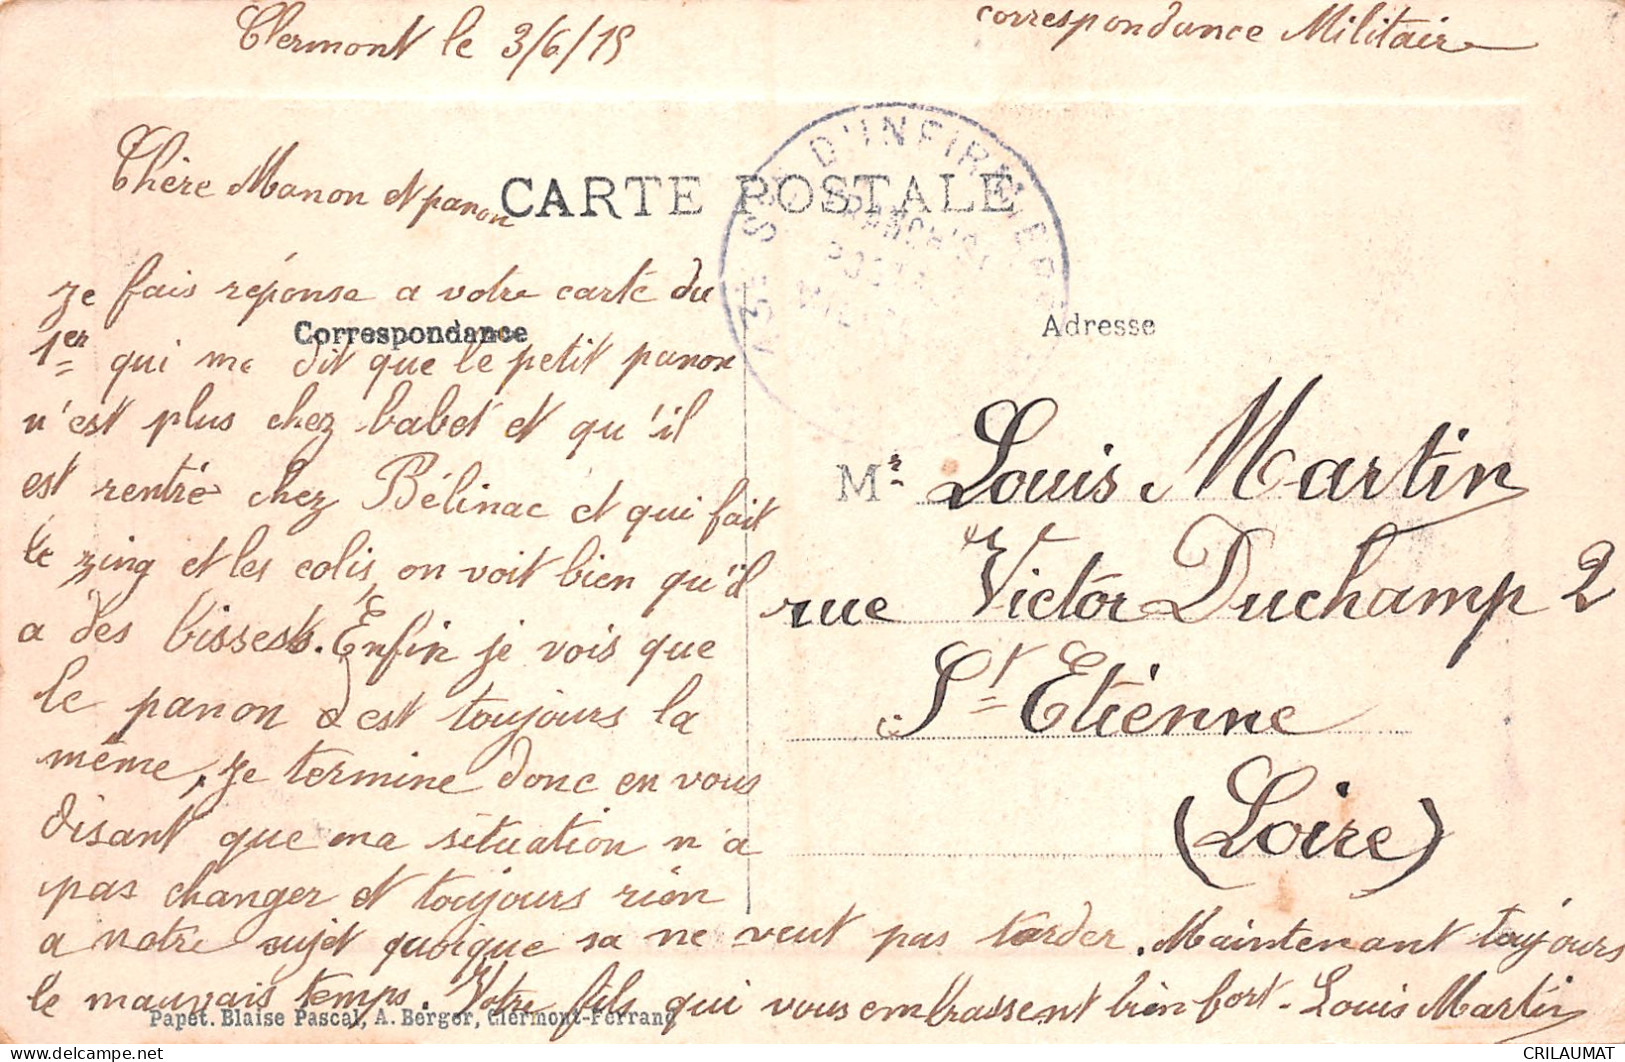 Clermont le 3/6/15
correspondance Militaire
Chère Manon et panon
CARTE POSTALE
13E SON D'INFIRMIERS
FRANCHISE
POSTALE
je fais réponse a votre carte du
Correspondance
Adresse
1er qui me dit que le petit panon
n'est plus chez babet et qu'il
est rentré chez Bélinac et qui fait
le zing et les colis, on voit bien qu'il
a des bissests. Enfin je vois que
le panon est toujours la
même, je termine donc en vous
disant que ma situation n'a
pas changer et toujours rien
a notre sujet quoique sa ne veut pas tarder. Maintenant toujours
le mauvais temps. Votre fils qui vous embrassent bien fort - Louis Martin
Mr Louis Martin
rue Victor Duchamp 2
St Etienne
(Loire)
Papet. Blaise Pascal, A. Berger, Clermont-Ferrand
CRILAUMAT